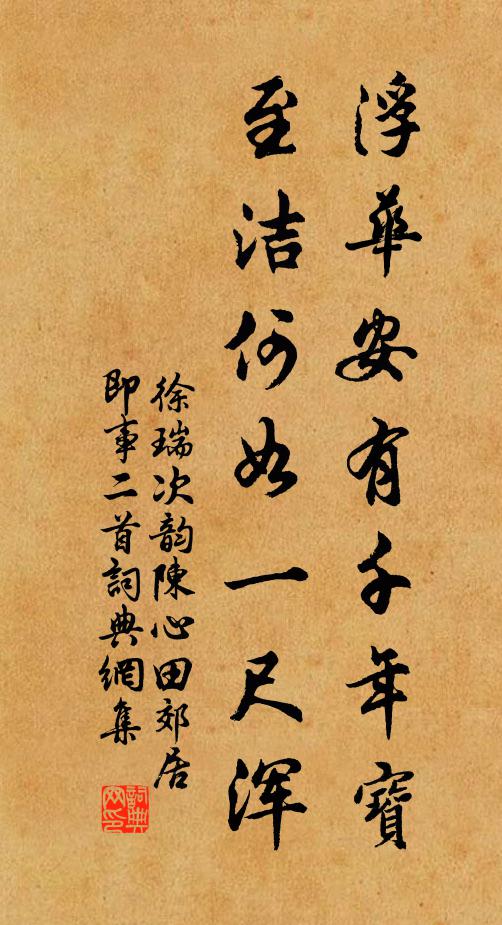 浮華安有千年寶
至洁何如一尺浑
徐瑞次韵陳心田郊居
即事二首詞典網集
詞典網印